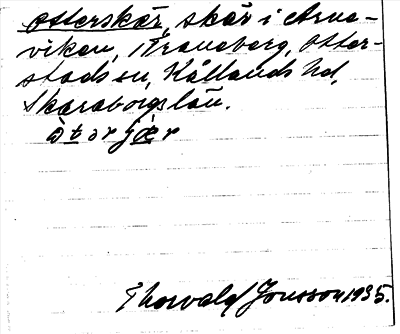 Otterskär, skär i Arne-
viken, Traneberg, Otter-
stads sn, Kållands hd,
Skaraborgs län.
òtərʃær
Thorvald Jonsson 1935.